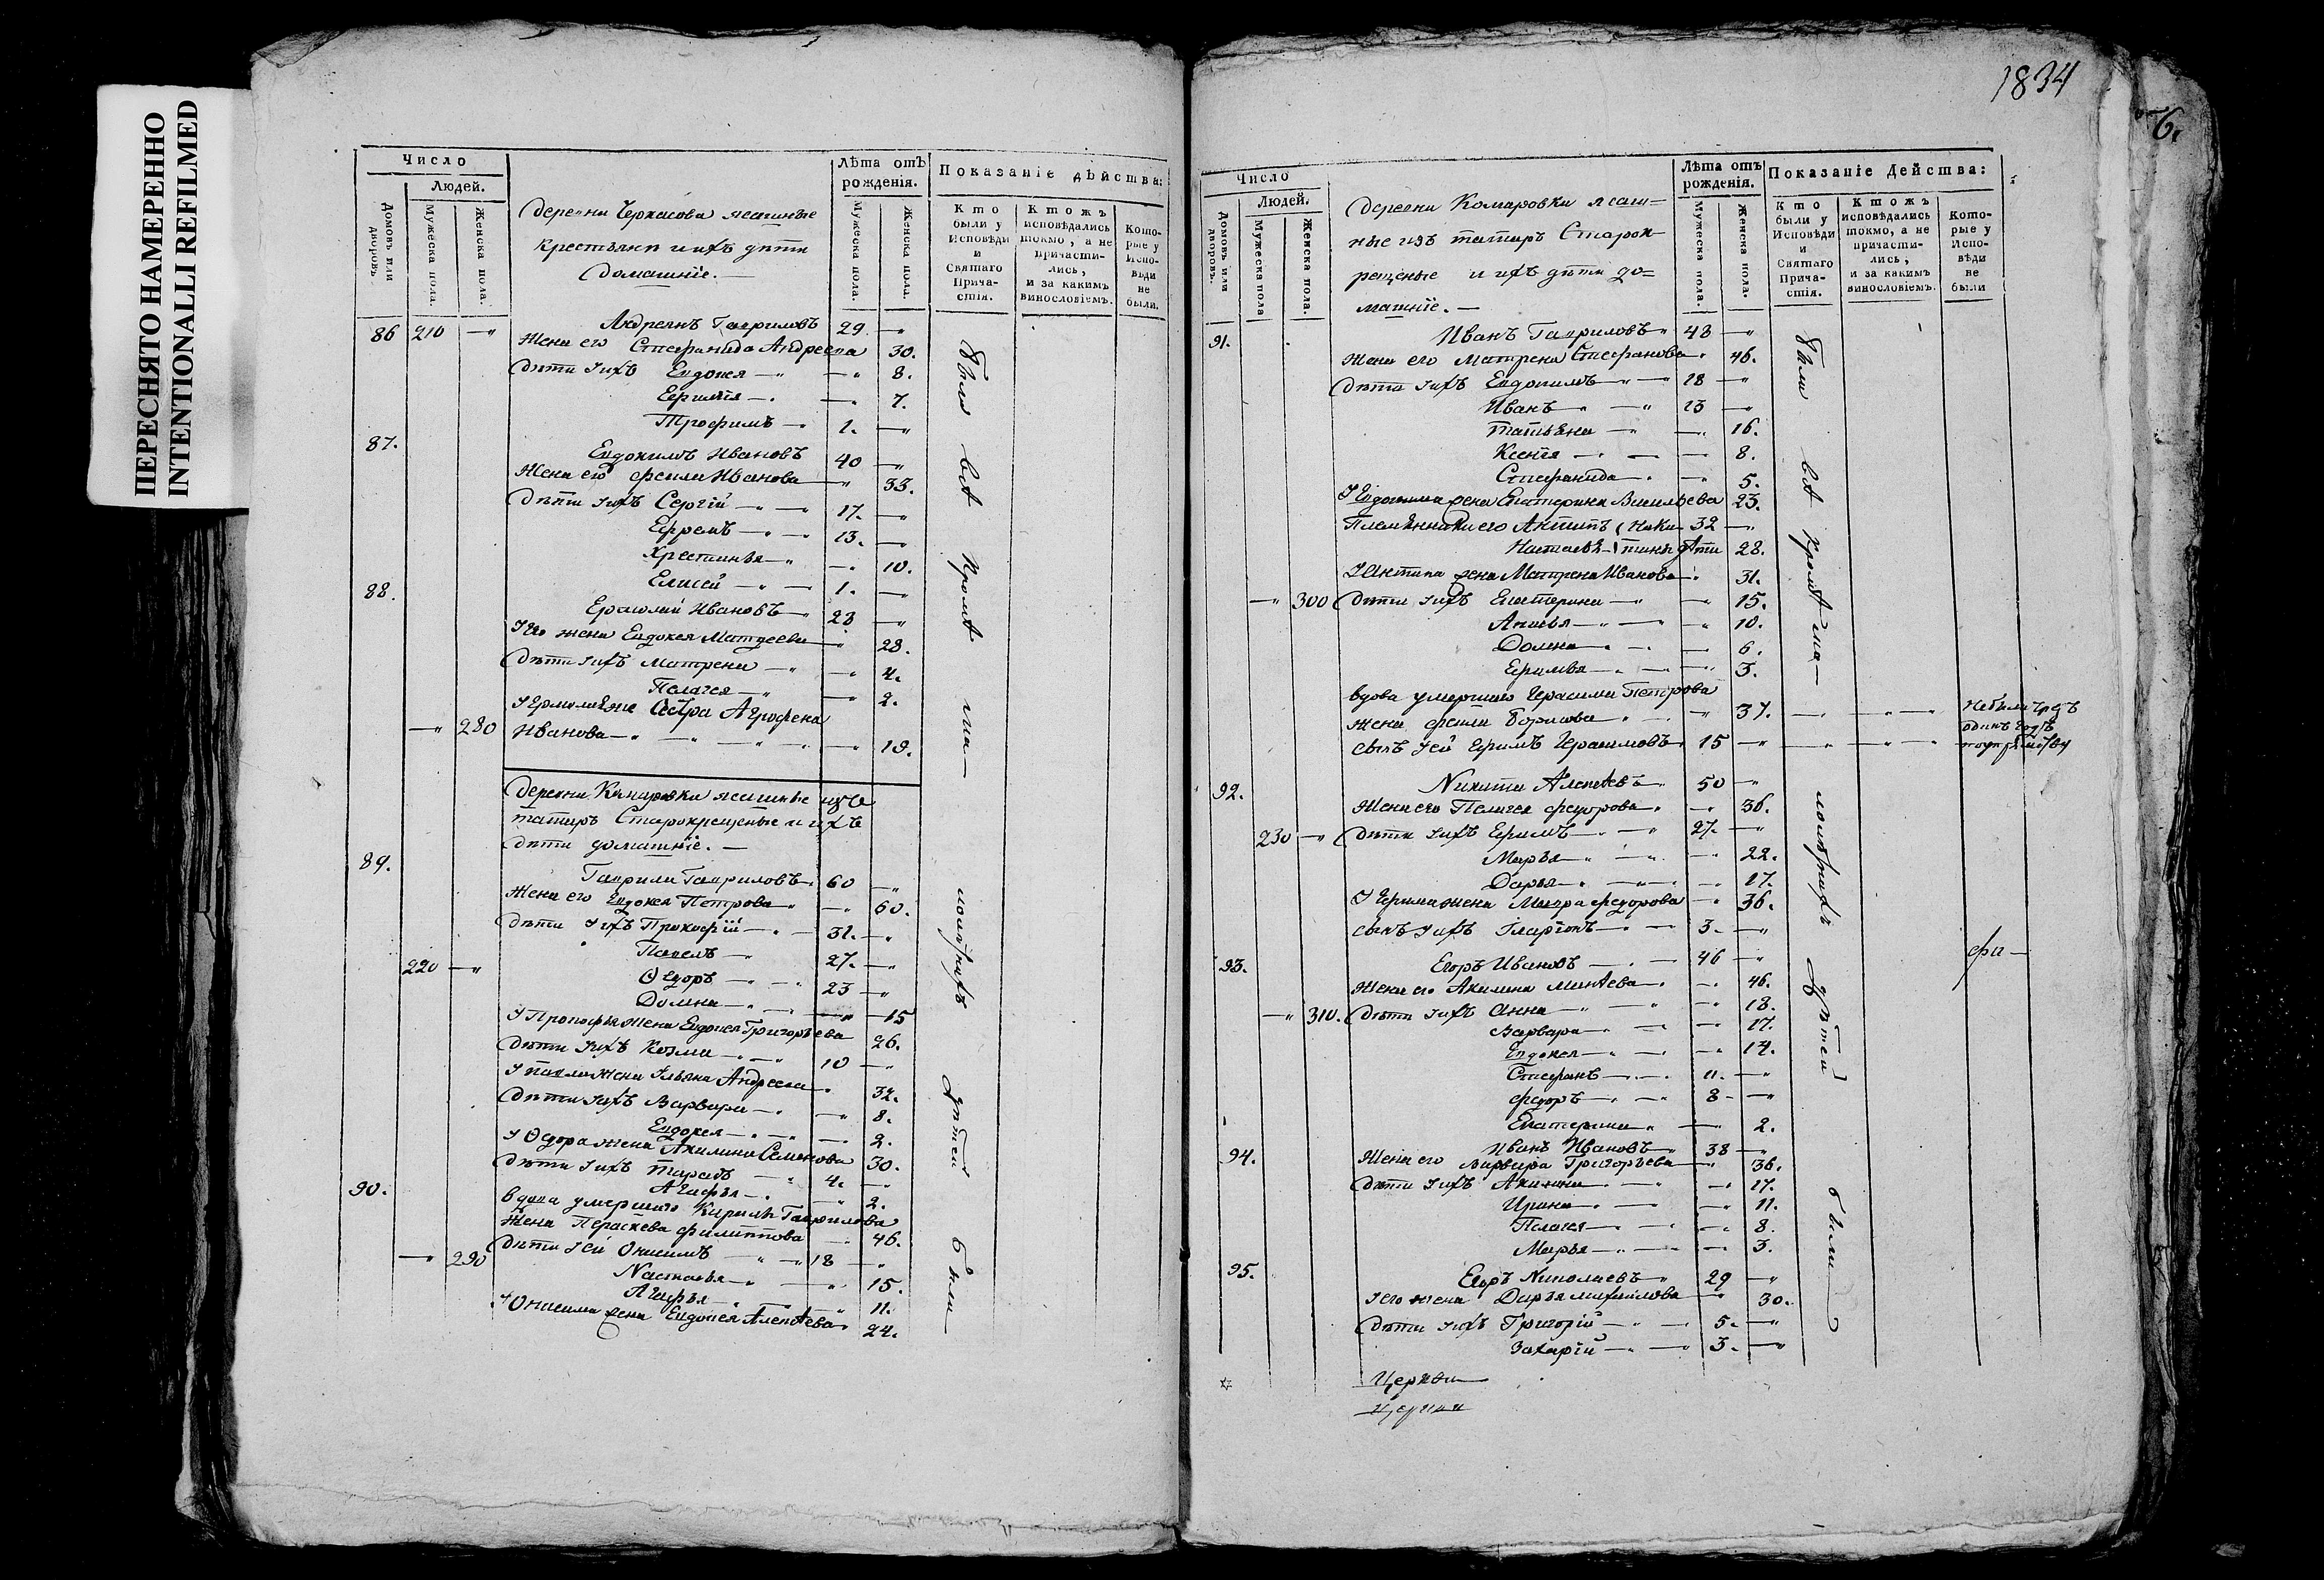 ПЕРЕСНЯТО НАМЕРЕННО
INTENTIONALLI REFILMED
Число
Людей.
Домовъ или дворовъ.
Мужеска пола.
Женска пола.
Деревни Черкасова ясашные
крестьяне и ихъ дѣти
домашніе. —
Лѣта отъ рожденія.
Мужеска пола.
Женска пола.
Показаніе дѣйства:
Кто были у Исповѣди и Святаго Прича-стія.
Ктожъ исповѣдались токмо, а не причасти-лись, и за какимъ винословіемъ.
Кото-рые у Испо-вѣди не были.
86 210 —" Андреянъ Гавриловъ 29. —"
Жена его Стефанида Андреева 30.
Дѣти ихъ Евдокея —" —" 8.
—" 7.
Трофимъ — 1. —"
87. Евдокимъ Ивановъ 40 —"
Жена его Иванова —" 33.
Дѣти ихъ Сергій —"— 17. —"
Ефремъ —"— 13. —"
Хрестинья —" —" 10.
Елисей —"— 1. —"
88. Ермолай Ивановъ — 28 —"
Его жена Евдокея Матвеева —" 28.
Дѣти ихъ Матрена —" —" 4.
Пелагея —" —" 2.
Сестра Агрофена
—" 280 Иванова —"—"—"— 19.
Деревни Комаровки ясашные изъ
татаръ Старокрещеные и ихъ
дѣти домашніе. —
89. Гаврила Гавриловъ 60 —"
Жена его Евдокея Петрова —" 60.
Дѣти ихъ Прокофій —" 31. —"
Павелъ —" 27. —"
220 —" Ѳедоръ —"— 23 —"
Домна —" —" 15
Прокофья жена Евдокея Григорьева 26.
Дѣти ихъ Козма —"— 10 —"
Павла жена Ульяна Андреева —" 32.
Дѣти ихъ Варвара —" —" 8.
Евдокея —"— 2.
Ѳедора жена Акилина Семенова 30.
Дѣти ихъ Тарасъ —" 4. —"
Агафья —" —" 2.
90. вдова умершаго Кирилы Гаврилова
Жена Пераскева Филиппова —" 46.
—" 290 Дѣти ей Онисимъ —"— 18 —"
Настасья —" —" 15.
Агафья —" —" 11.
Онисима жена Евдокея Алексѣева 24.
Были всѣ кромѣ ма—
лолѣтнихъ дѣтей были
1834
6.
Число
Людей.
Домовъ или дворовъ.
Мужеска пола
Женска пола.
Деревни Комаровки ясаш=
ные изъ татаръ Старок=
рещеные и ихъ дѣти до=
машніе. —
Лѣта отъ рожденія.
Мужеска пола.
Женска пола.
Показаніе Действа:
Кто были у Исповѣди и Святаго Прича-стія.
Ктожъ исповѣдались токмо, а не причасти-лись, и за какимъ винословіемъ.
Кото-рые у Испо-вѣди не были
91. Иванъ Гавриловъ —" 48 —"
Жена его Матрена Стефанова —" 46.
Дѣти ихъ Евдокимъ —"— 18 —"
Иванъ —"—" 13 —"
Татьяна —" —" 16.
Ксенія —"— 8.
Стефанида —" —" 5.
Евдокима жена Екатерина Васильева 23.
Племянники его Антипъ 32 —"
Настасья дѣти 28.
Антипа жена Матрена Иванова —" 31.
—" 300 Дѣти ихъ Екатерина —" —" 15.
Анисья —"—" —" 10.
Домна —"— 6.
—" 3.
вдова умершаго Герасима Петрова
жена Борисова —" —" 37. —"—"—" Небыли чрезъ
одинъ годъ
сынъ ей Ефимъ Герасимовъ 15 —" —"—"—"
92. Никита Алексѣевъ 50 —"
Жена его Пелагея Федорова —" 36.
230 —" Дѣти ихъ Ефимъ —"— 27. —"
Марья —"—" —" 22.
Дарья —"—" —" 17.
Ефима жена Мавра Федорова —" 36.
сынъ ихъ Иларіонъ —"— 3. —"
93. Егоръ Ивановъ —"— 46 —"
Жена его Акилина —" 46.
—" 310. Дѣти ихъ Анна —" —" 18.
Варвара —"— —" 17.
Евдокея —"— —" 14.
Стефанъ —"— 11. —"
Федоръ —"— 8 —"
Екатерина —" 2.
94. Иванъ Ивановъ —" 38 —"
Жена его Варвара Григорьева —" 36.
Дѣти ихъ Акилина —" —" 17.
Ирина —"— —" 11.
Пелагея —"— —" 8.
Марья —"— —" 3.
95. Егоръ Николаевъ —" 29 —"
его жена Дарья Михайлова —" 30.
Дѣти ихъ Григорій —"— 5. —"
Захарій —"— 3. —"
Были всѣ кромѣ ма—
лолѣтнихъ дѣтей были
Церкви